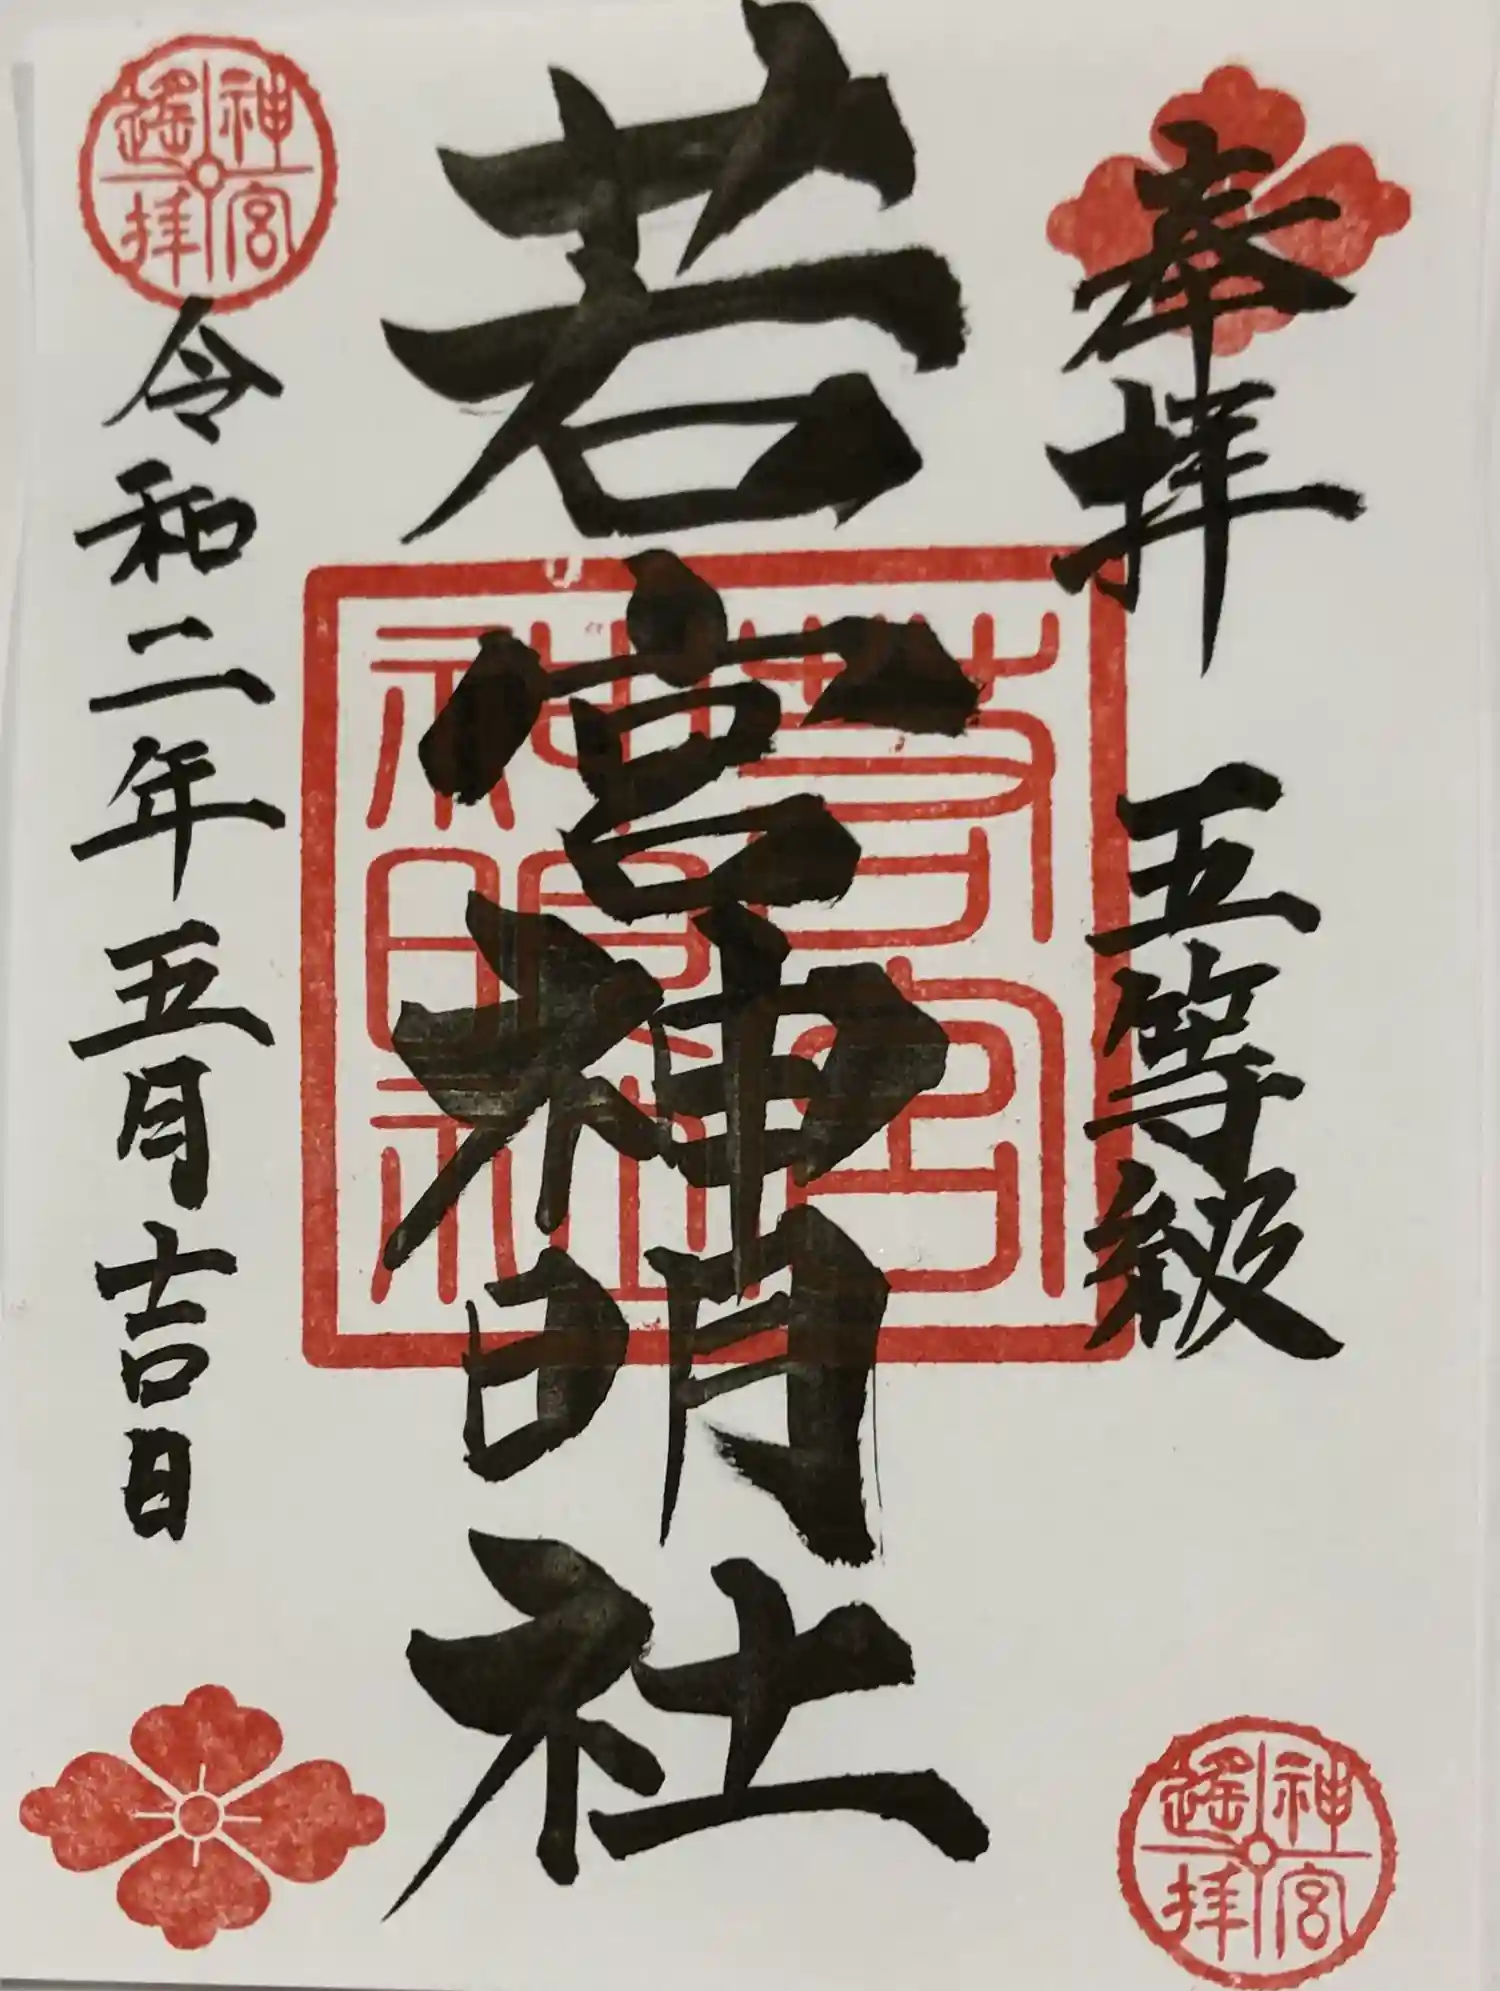 奉拝 五等級
若宮神明社
令和二年五月吉日
若宮
神明社
神宮
遙拝
神宮
遙拝